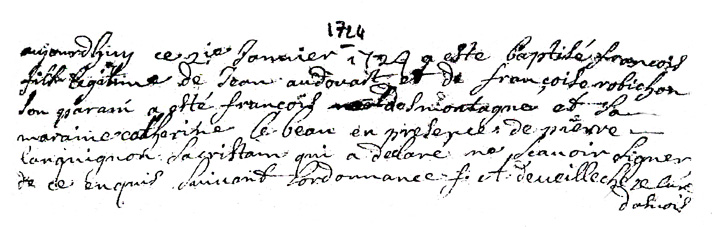 1724
aujourdhuy ce 21e Janvier 1724 a este baptisé françois
fils legitime de Jean audouart et de françoise robichon
son parain a este françois desmontagne et sa
maraine catherine le beau en presence de pierre
Languignon Sacristain qui a declaré ne scavoir signer
de ce enquis suivant l'ordonnance f. et deveilleche